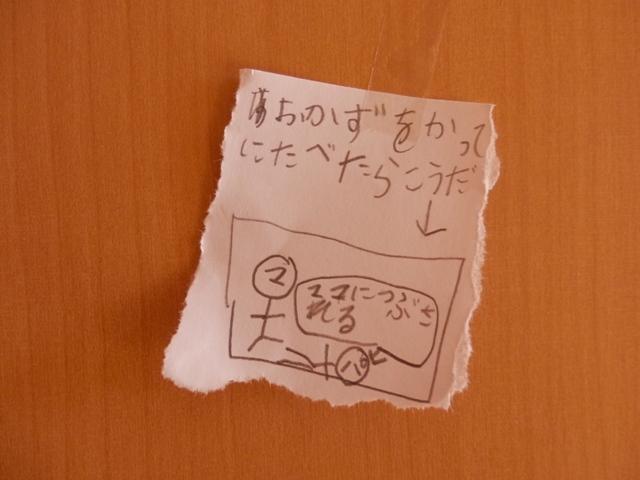 おかずをかって
にたべたらこうだ
↓
マ
ママにつぶさ
れる
パ